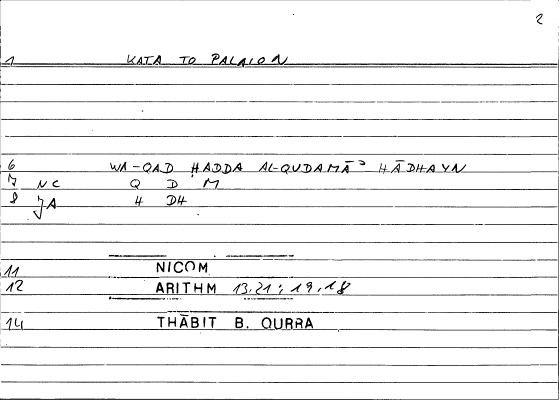 2
1 KATA TO PALAION
6 WA-QAD ḤADDA AL-QUDAMĀʾ HĀDHAYN
7 NC Q D M
8 JA H DH
11 NICOM
12 ARITHM 13,21; 19,18
14 THĀBIT B. QURRA